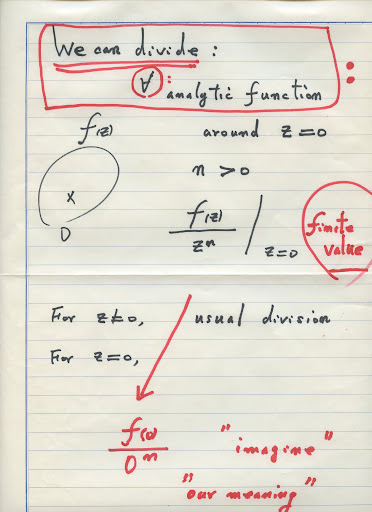 We can divide :
∀ : analytic function :
f(z) around z = 0
n > 0
f(z) / zⁿ | z=0 finite value
0
For z≠0, usual division
For z=0,
f(0) / 0ⁿ "imagine"
"our meaning"